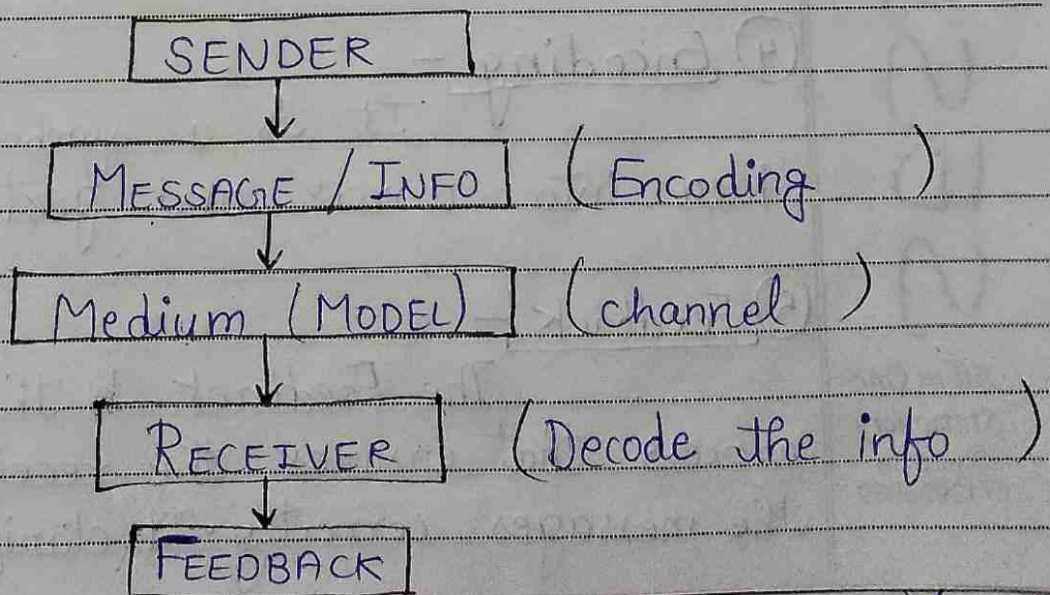 SENDER
MESSAGE / INFO (Encoding)
Medium (MODEL) (channel)
RECEIVER (Decode the info)
FEEDBACK